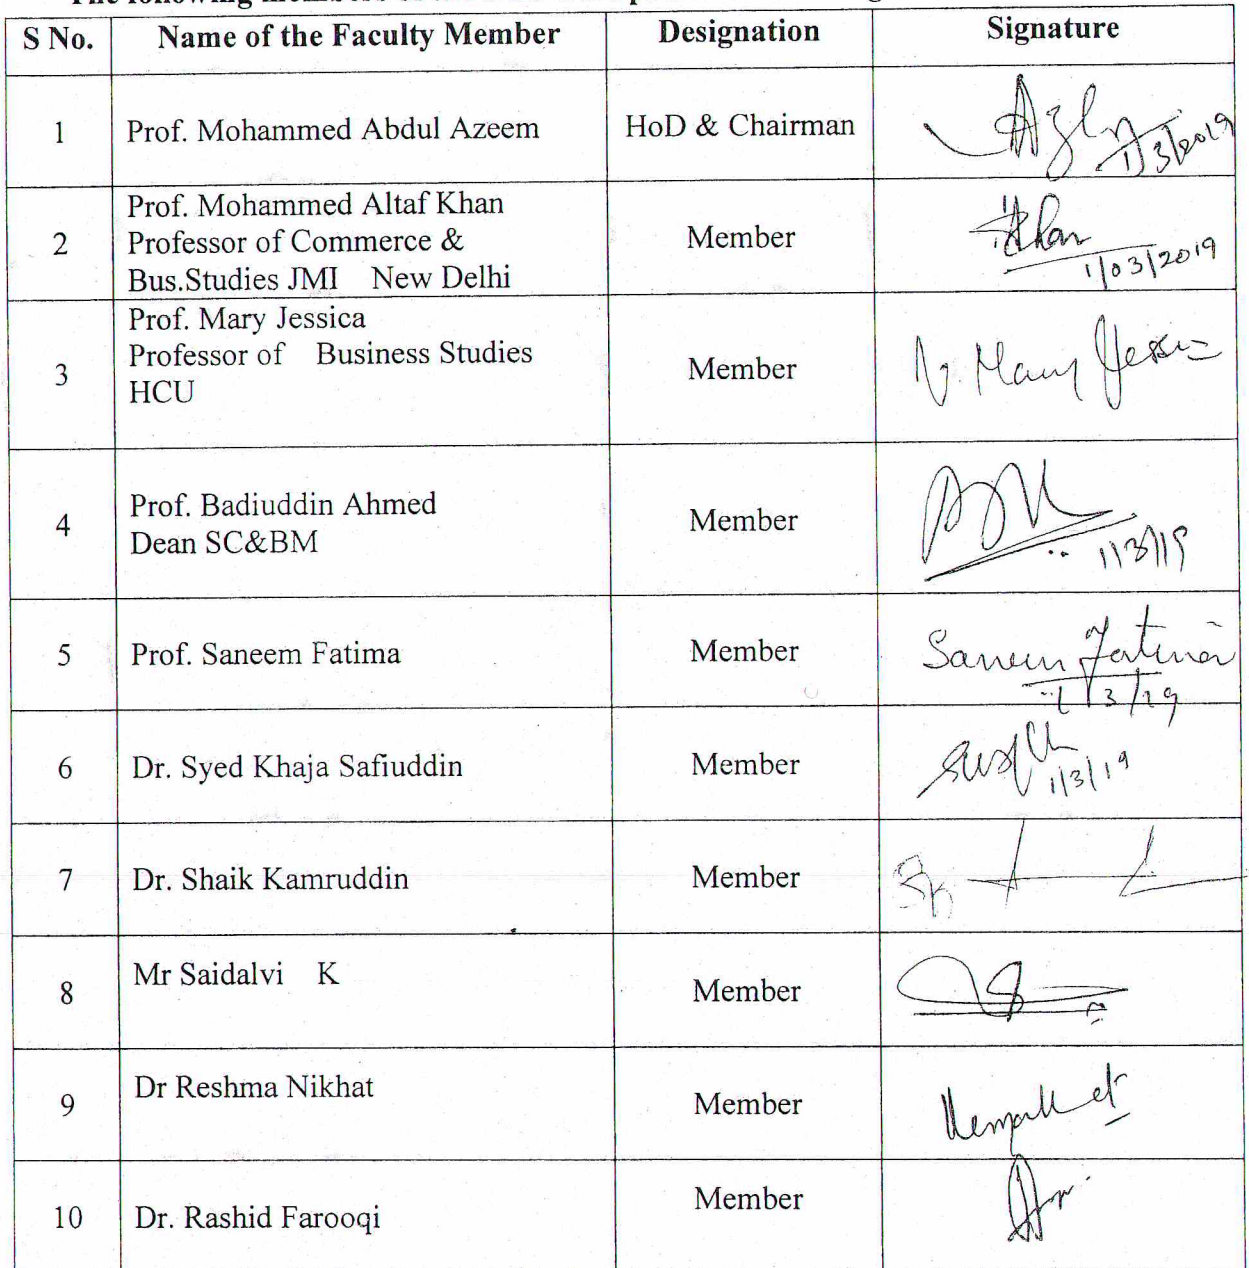 S No. Name of the Faculty Member Designation Signature
1 Prof. Mohammed Abdul Azeem HoD & Chairman
1/3/2019
Prof. Mohammed Altaf Khan
2 Professor of Commerce & Member
Bus.Studies JMI New Delhi
Khan
1/03/2019
Prof. Mary Jessica
3 Professor of Business Studies Member
HCU
Mary Jessica
4 Prof. Badiuddin Ahmed Member
Dean SC&BM
1/3/19
5 Prof. Saneem Fatima Member Saneem Fatima
1/3/19
6 Dr. Syed Khaja Safiuddin Member
1/3/19
7 Dr. Shaik Kamruddin Member
Mr Saidalvi K
8 Member
Dr Reshma Nikhat
9 Member
Member
10 Dr. Rashid Farooqi